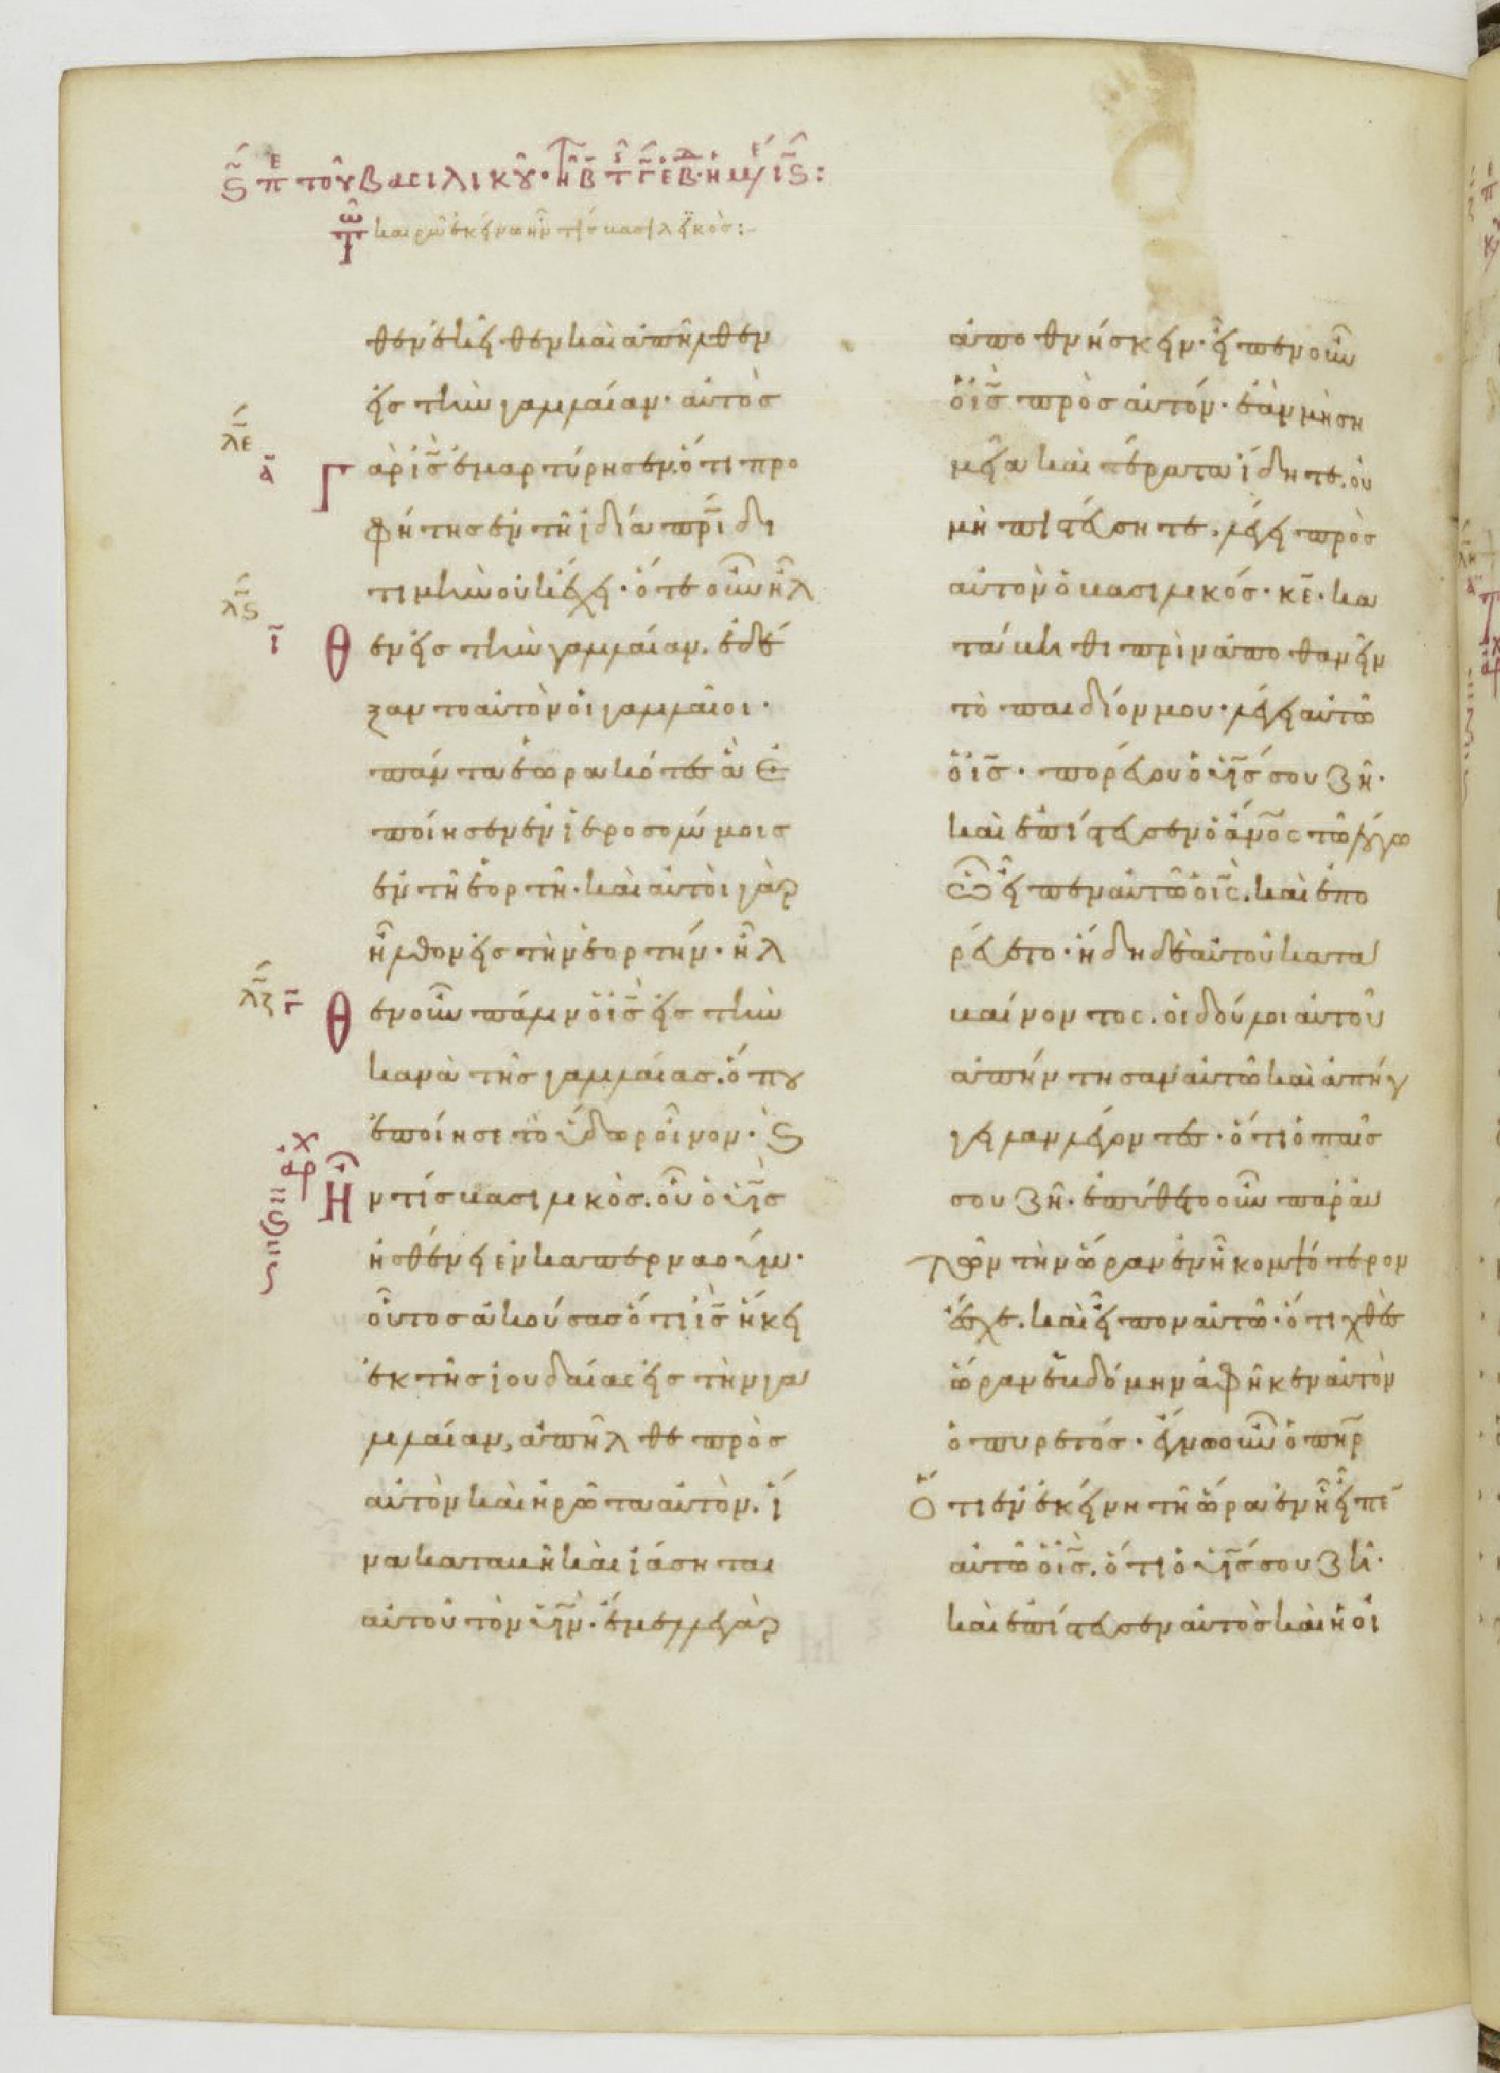 Ϛ π ε τοῦ βασιλικοῦ·
τῷ καιρῷ ἐκείνῳ ἦν τίς βασιλικὸς:-
θεν ἐκεῖθεν καὶ ἀπῆλθεν
εἰς τὴν γαλλαίαν· αὐτὸς
λε
Γαρ ἰς̅ ἐμαρτύρησεν. ὅτι προ
φήτης ἐν τῇ ἰδία πρ̅ίδι
τιμὴν οὐκ ἔχει· ὅτε οὖν ἦλ
λϛ
Θεν εἰς τὴν γαλλαίαν. ἐδέ
ξαντο αὐτὸν οἱ γαλλαῖοι·
πάντα ἑωρακότες ἃ ἐ
ποίησεν ἐν ἱεροσολύμοις
ἐν τῇ ἑορτῇ· καὶ αὐτοὶ γὰρ
ἦλθον εἰς τὴν ἑορτήν· ἦλ
λζ
Θεν οὖν πάλιν ὁ ἰς̅ εἰς τὴν
κανὰ τῆς γαλλαίας. ὅπου
ἐποίησε τὸ ὕδωρ οἶνον· Ϛ
ἀρχ
Ἦν τίς βασιλικὸς. οὗ ὁ υἱ̅ς
ἠσθένει ἐν καπερναούμ·
οὗτος ἀκούσας ὅτι ἰς̅ ἥκει
ἐκ τῆς ἰουδαίας εἰς τὴν γα
λλαίαν, ἀπῆλθε πρὸς
αὐτὸν καὶ ἠρώτα αὐτὸν. ἵ
να καταβῆ καὶ ἰάσηται
αὐτοῦ τὸν υἱ̅ν· ἔμελλε γὰρ
ἀποθνήσκειν· εἶπεν οὖν
ὁ ἰς̅ πρὸς αὐτόν· ἐὰν μὴ ση
μεῖα καὶ τέρατα ἴδητε. οὐ
μὴ πιστεύσητε. λέγει πρὸς
αὐτὸν ὁ βασιλικός· κε̅· κα
τάβηθι πρὶν ἀποθανεῖν
τὸ παιδίον μου· λέγει αὐτῶ
ὁ ἰς̅· πορεύου ὁ υἱ̅ς σου ζῆ·
καὶ ἐπίστευσεν ὁ ἀν̅ος τῶ λόγω
ᾧ εἶπεν αὐτῶ ὁ ἰς̅. καὶ ἐπο
ρεύετο· ἤδη δὲ αὐτοῦ κατα
βαίνοντος. οἱ δούλοι αὐτοῦ
ἀπήντησαν αὐτῶ καὶ ἀπήγ
γειλαν λέγοντες· ὅτι ὁ παῖς
σου ζῆ· ἐπύθετο οὖν παρ' αὐ
τῶν τὴν ὥραν ἐν ἧ κομψότερον
ἔσχε. καὶ εἶπον αὐτῶ· ὅτι χθὲς
ὥραν ἑβδόμην ἀφῆκεν αὐτὸν
ὁ πυρετός· ἔγνω οὖν ὁ πη̅ρ
Ὅτι ἐν ἐκείνη τῆ ὥρα ἐν ἧ εἶπε
αὐτῶ ὁ ἰς̅. ὅτι ὁ υἱ̅ς σου ζῆ·
καὶ ἐπίστευσεν αὐτὸς καὶ ἡ οἰ